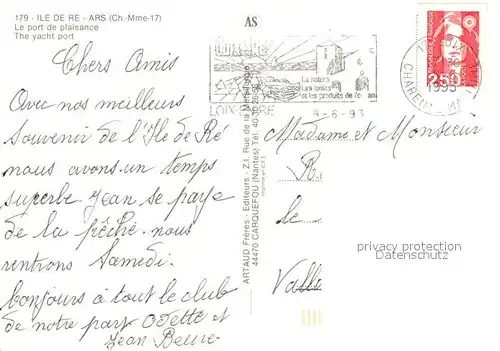 179 - ILE DE RE - ARS (Ch.-Mme-17)
Le port de plaisance
The yacht port
AS
Chers Amis
Avec nos meilleurs
souvenir de l'Ile de Ré
nous avons un temps
superbe. Jean se paye
de la pêche. nous
rentrons Samedi.
bonjours à tout le club
de notre part Odette et
Jean
ARTAUD Frères - Editeurs - Z.I. Rue de la Métallurgie
44470 CARQUEFOU (Nantes) Tél. 40.30.
La nature
ses loisirs
et les produits de
LOIX-EN-RE
8-6-93
REPUBLIQUE FRANÇAISE
2,50
1993
CHARENTE-M
Madame et Monsieur
R.
le
Valle
privacy protection watermark